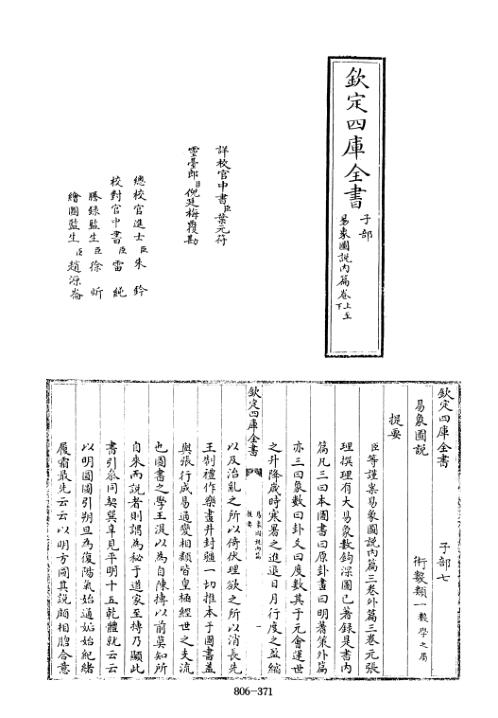 欽定四庫全書
子部
易象圖說內篇卷上至下
詳校官中書臣葉元符
靈臺郎臣倪廷梅覆勘
總校官進士臣朱鈐
校對官中書臣雷純
謄錄監生臣徐炘
繪圖監生臣趙源崙
欽定四庫全書 子部七
易象圖說 術數類一數學之屬
提要
臣等謹案易象圖說內篇三卷外篇三卷元張
理撰理有大易象數鈎深圖已著錄是書內
篇凡三曰本圖書曰原卦畫曰明蓍策外篇
亦三曰象數曰卦爻曰度數其于元會運世
之升降歲時寒暑之進退日月行度之盈縮
欽定四庫全書
易象圖說內篇
提要
一
以及治亂之所以倚伏理欲之所以消長先
王制禮作樂畫井封疆一切推本于圖書蓋
與張行成易通變相類皆皇極經世之支流
也圖書之學王湜以為自陳摶以前莫知所
自來而說者則謂為秘于道家至摶乃顯此
書引參同契巽辛見平明十五乾體就云云
以明圓圖引朔旦為復陽氣始通姤始紀緒
履霜最先云云以明方圖其說頗相脗合意
806-371